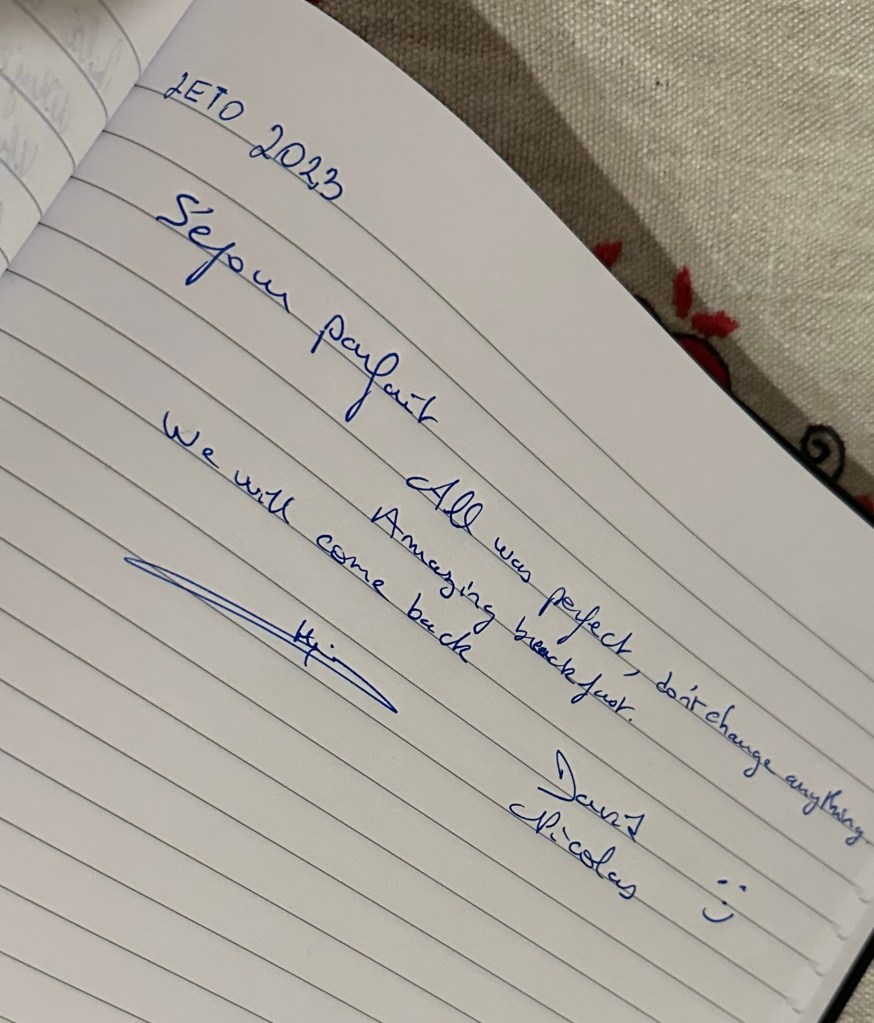 LETO 2023
Séjour parfait
All was perfect, don't change anything.
Amazing breackfast.
We will come back
David
Nicolas :)